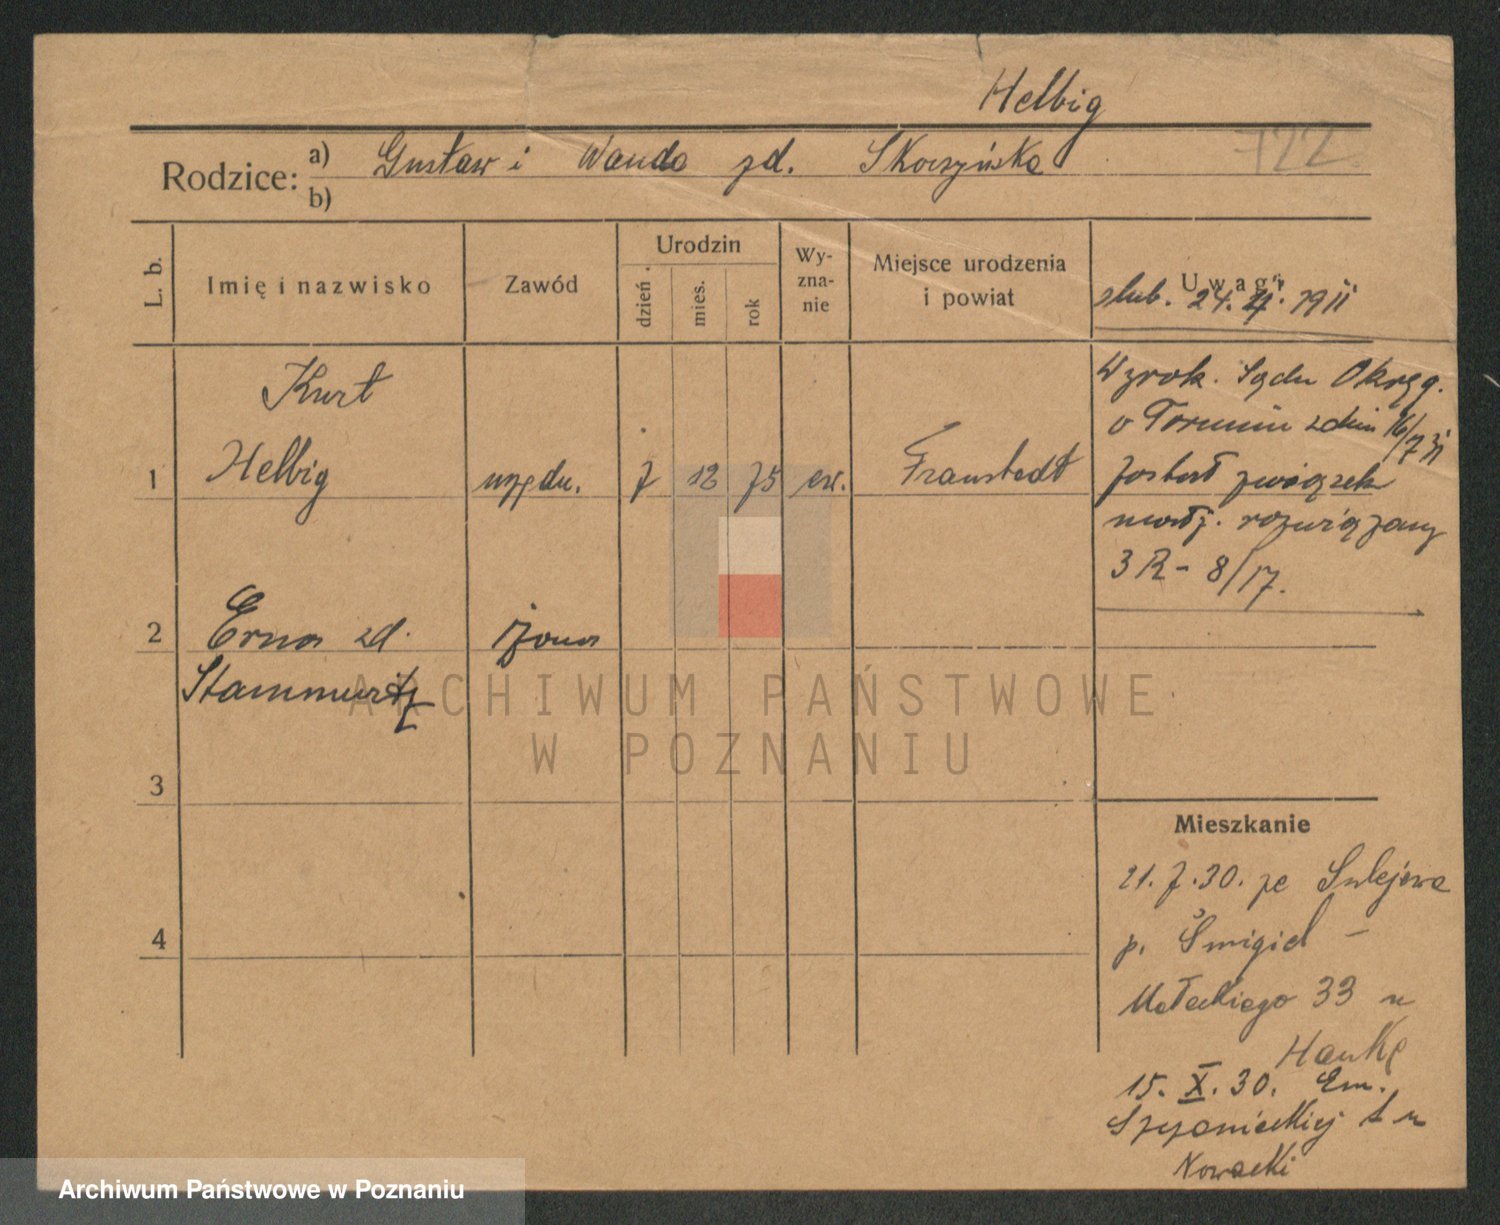 Helbig
722
Rodzice: a) Gustaw i Wanda zd. Skoczyńska
b)
L. b.
Imię i nazwisko
Zawód
Urodzin
dzień
mies.
rok
Wy-
zna-
nie
Miejsce urodzenia
i powiat
Uwagi
ślub. 24. 1911
Kurt
1 Helbig urzędn. 7 12 75 ew. Fraustadt
Wyrok. Sądu Okręg.
w Toruniu z dnia 16/7 31
został związek
małż. rozwiązany
3 R - 8/17.
2 Erna zd. żona
3
4
Mieszkanie
21. 7. 30. ze Sulejewa
p. Śmigiel -
Małeckiego 33 u
Hanke
15. X. 30. Em.
Sczanieckiej u
Nowacki
ARCHIWUM PAŃSTWOWE
W POZNANIU
Archiwum Państwowe w Poznaniu